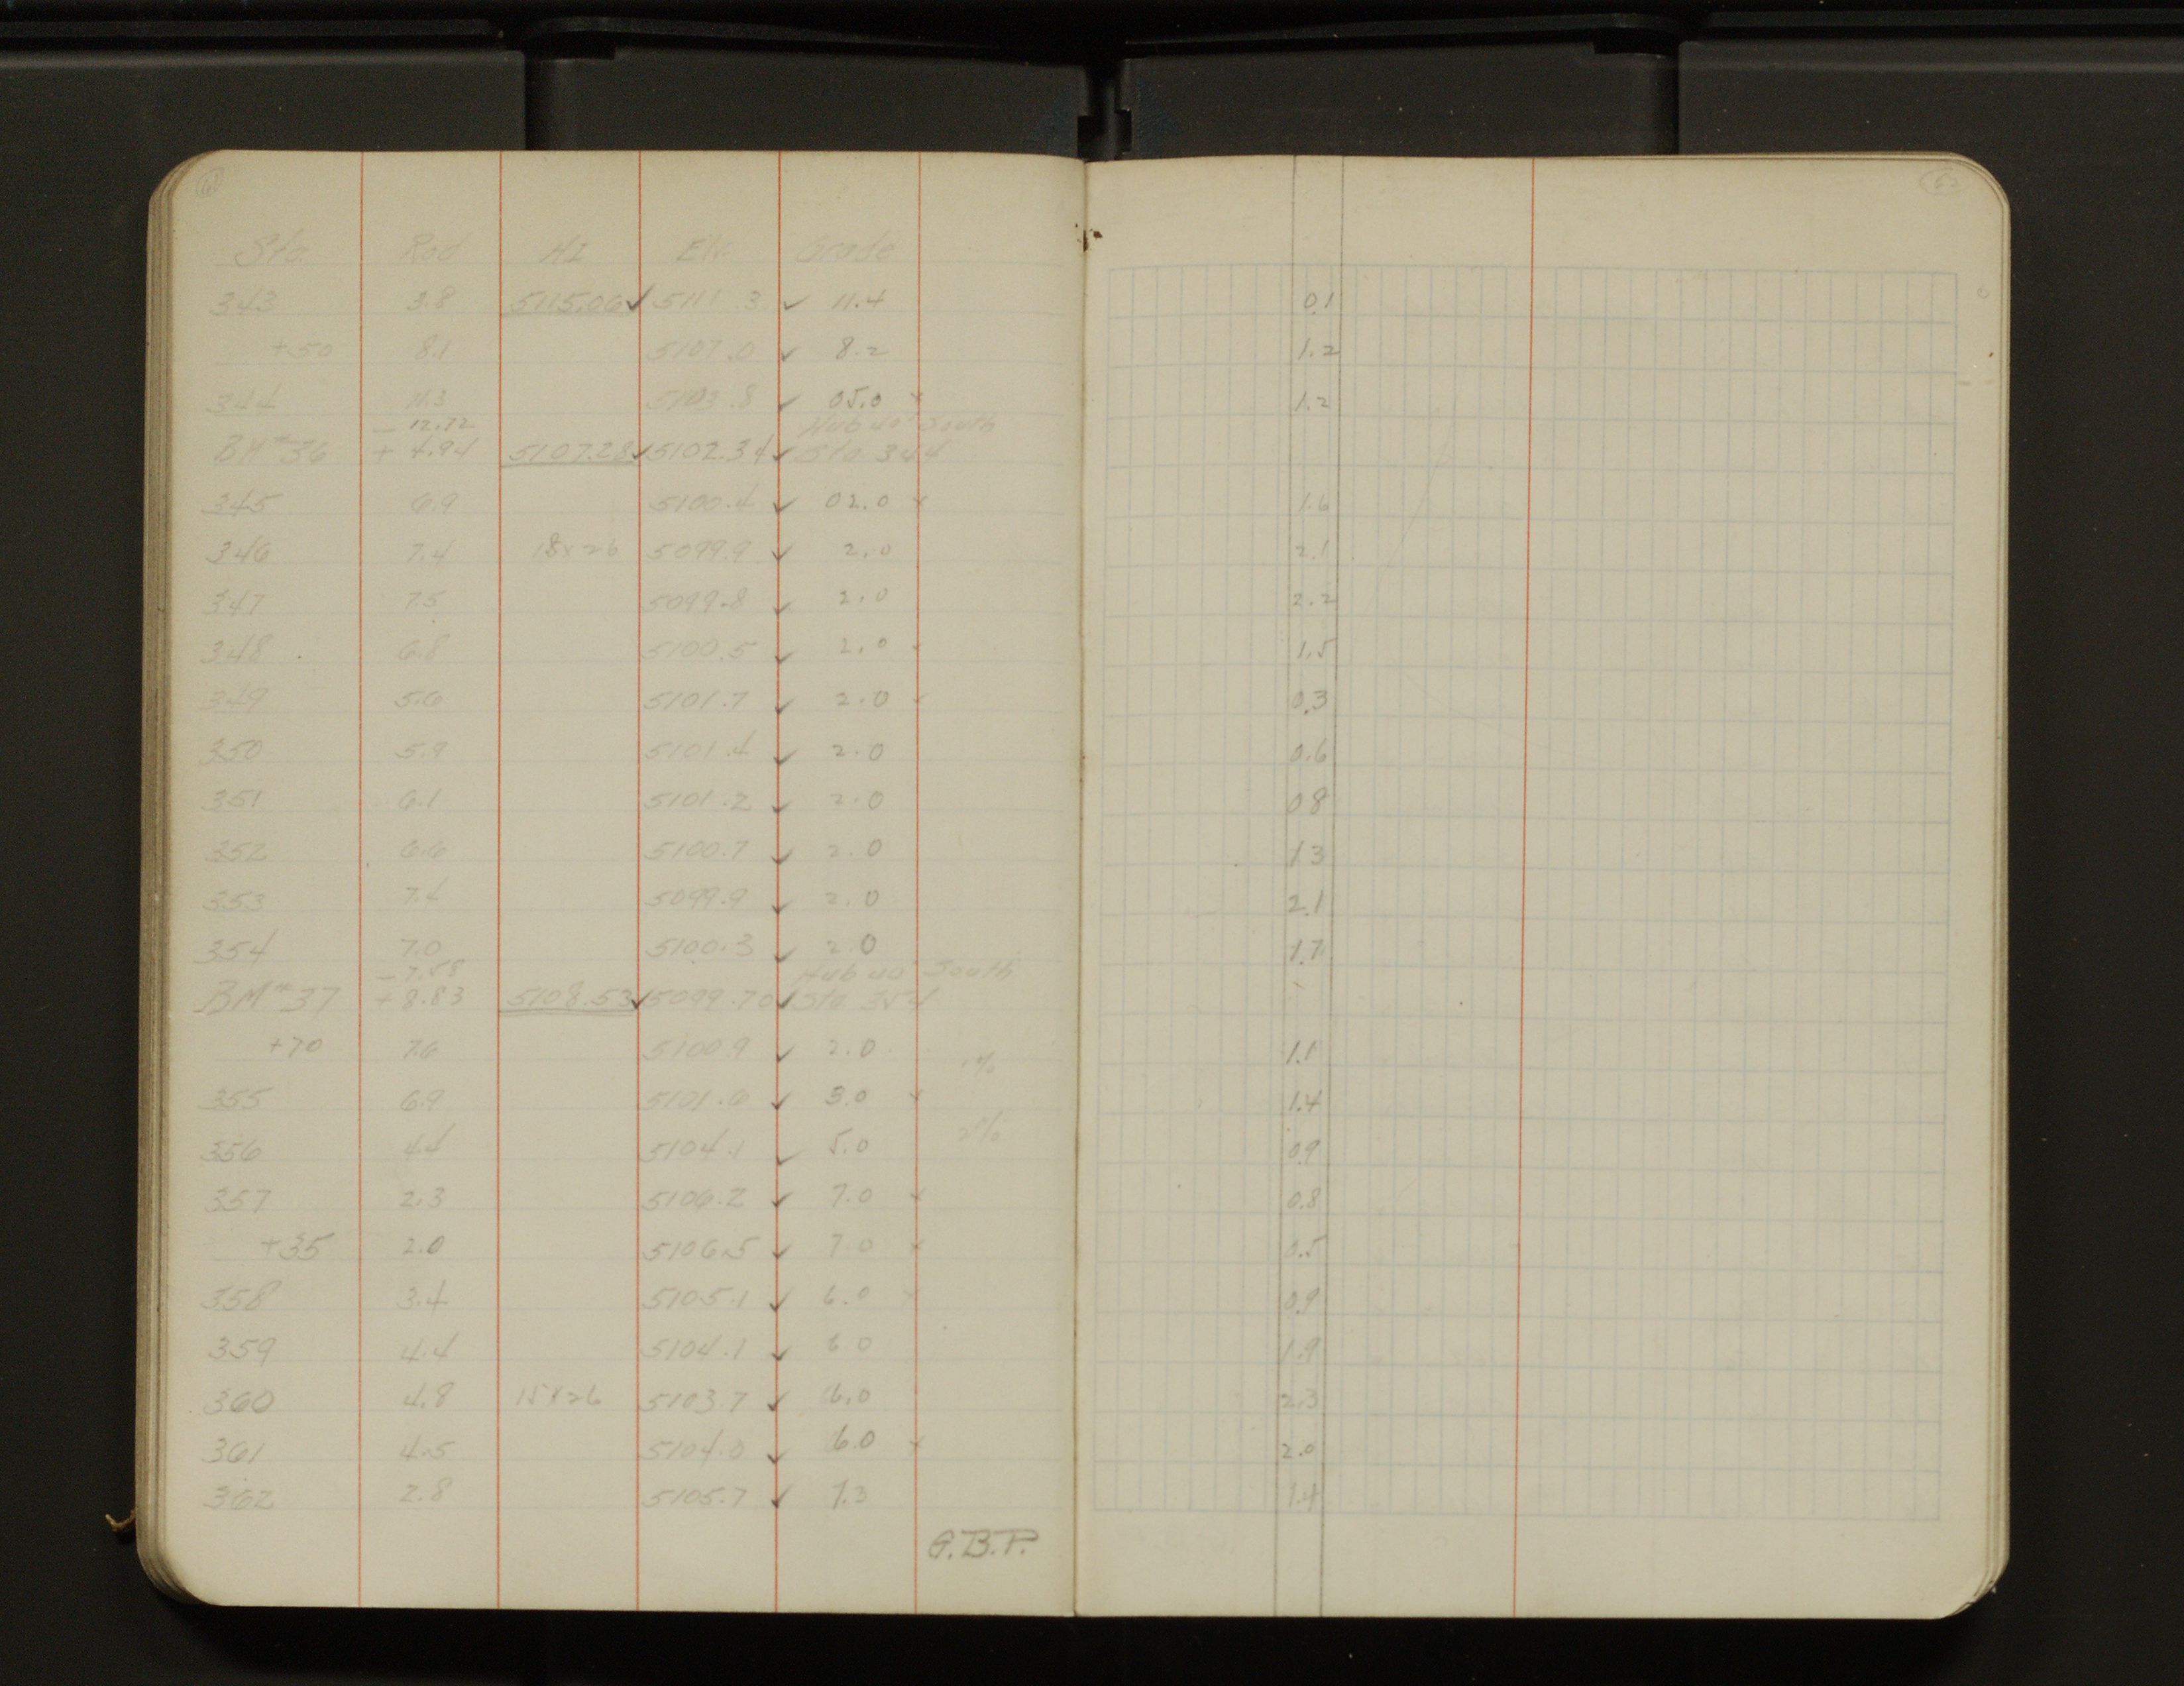 61 62
Sta. Rod HI Elv. Grade
343 3.8 5115.06✓ 5111.3 ✓ 11.4 0.1
+50 8.1 5107.0 ✓ 8.2 1.2
344 11.3 5103.8 ✓ 05.0 x 1.2
- 12.72 Hub 40' South
BM#36 + 4.94 5107.28✓ 5102.34✓ Sta 344
345 6.9 5100.4 ✓ 02.0 x 1.6
346 7.4 18x26 5099.9 ✓ 2.0 2.1
347 7.5 5099.8 ✓ 2.0 2.2
348 6.8 5100.5 ✓ 2.0 x 1.5
349 5.6 5101.7 ✓ 2.0 x 0.3
350 5.9 5101.4 ✓ 2.0 0.6
351 6.1 5101.2 ✓ 2.0 0.8
352 6.6 5100.7 ✓ 2.0 1.3
353 7.4 5099.9 ✓ 2.0 2.1
354 7.0 5100.3 ✓ 2.0 1.7
- 7.58 Hub 40' South
BM#37 + 8.83 5108.53✓ 5099.70✓ Sta 354
+70 7.6 5100.9 ✓ 2.0 1.1
355 6.9 5101.6 ✓ 3.0 x 1.4
356 4.4 5104.1 ✓ 5.0 2% 0.9
357 2.3 5106.2 ✓ 7.0 x 0.8
+35 2.0 5106.5 ✓ 7.0 x 0.5
358 3.4 5105.1 ✓ 6.0 x 0.9
359 4.4 5104.1 ✓ 6.0 1.9
360 4.8 15x26 5103.7 ✓ 6.0 2.3
361 4.5 5104.0 ✓ 6.0 x 2.0
362 2.8 5105.7 ✓ 7.3 1.4
G.B.P.